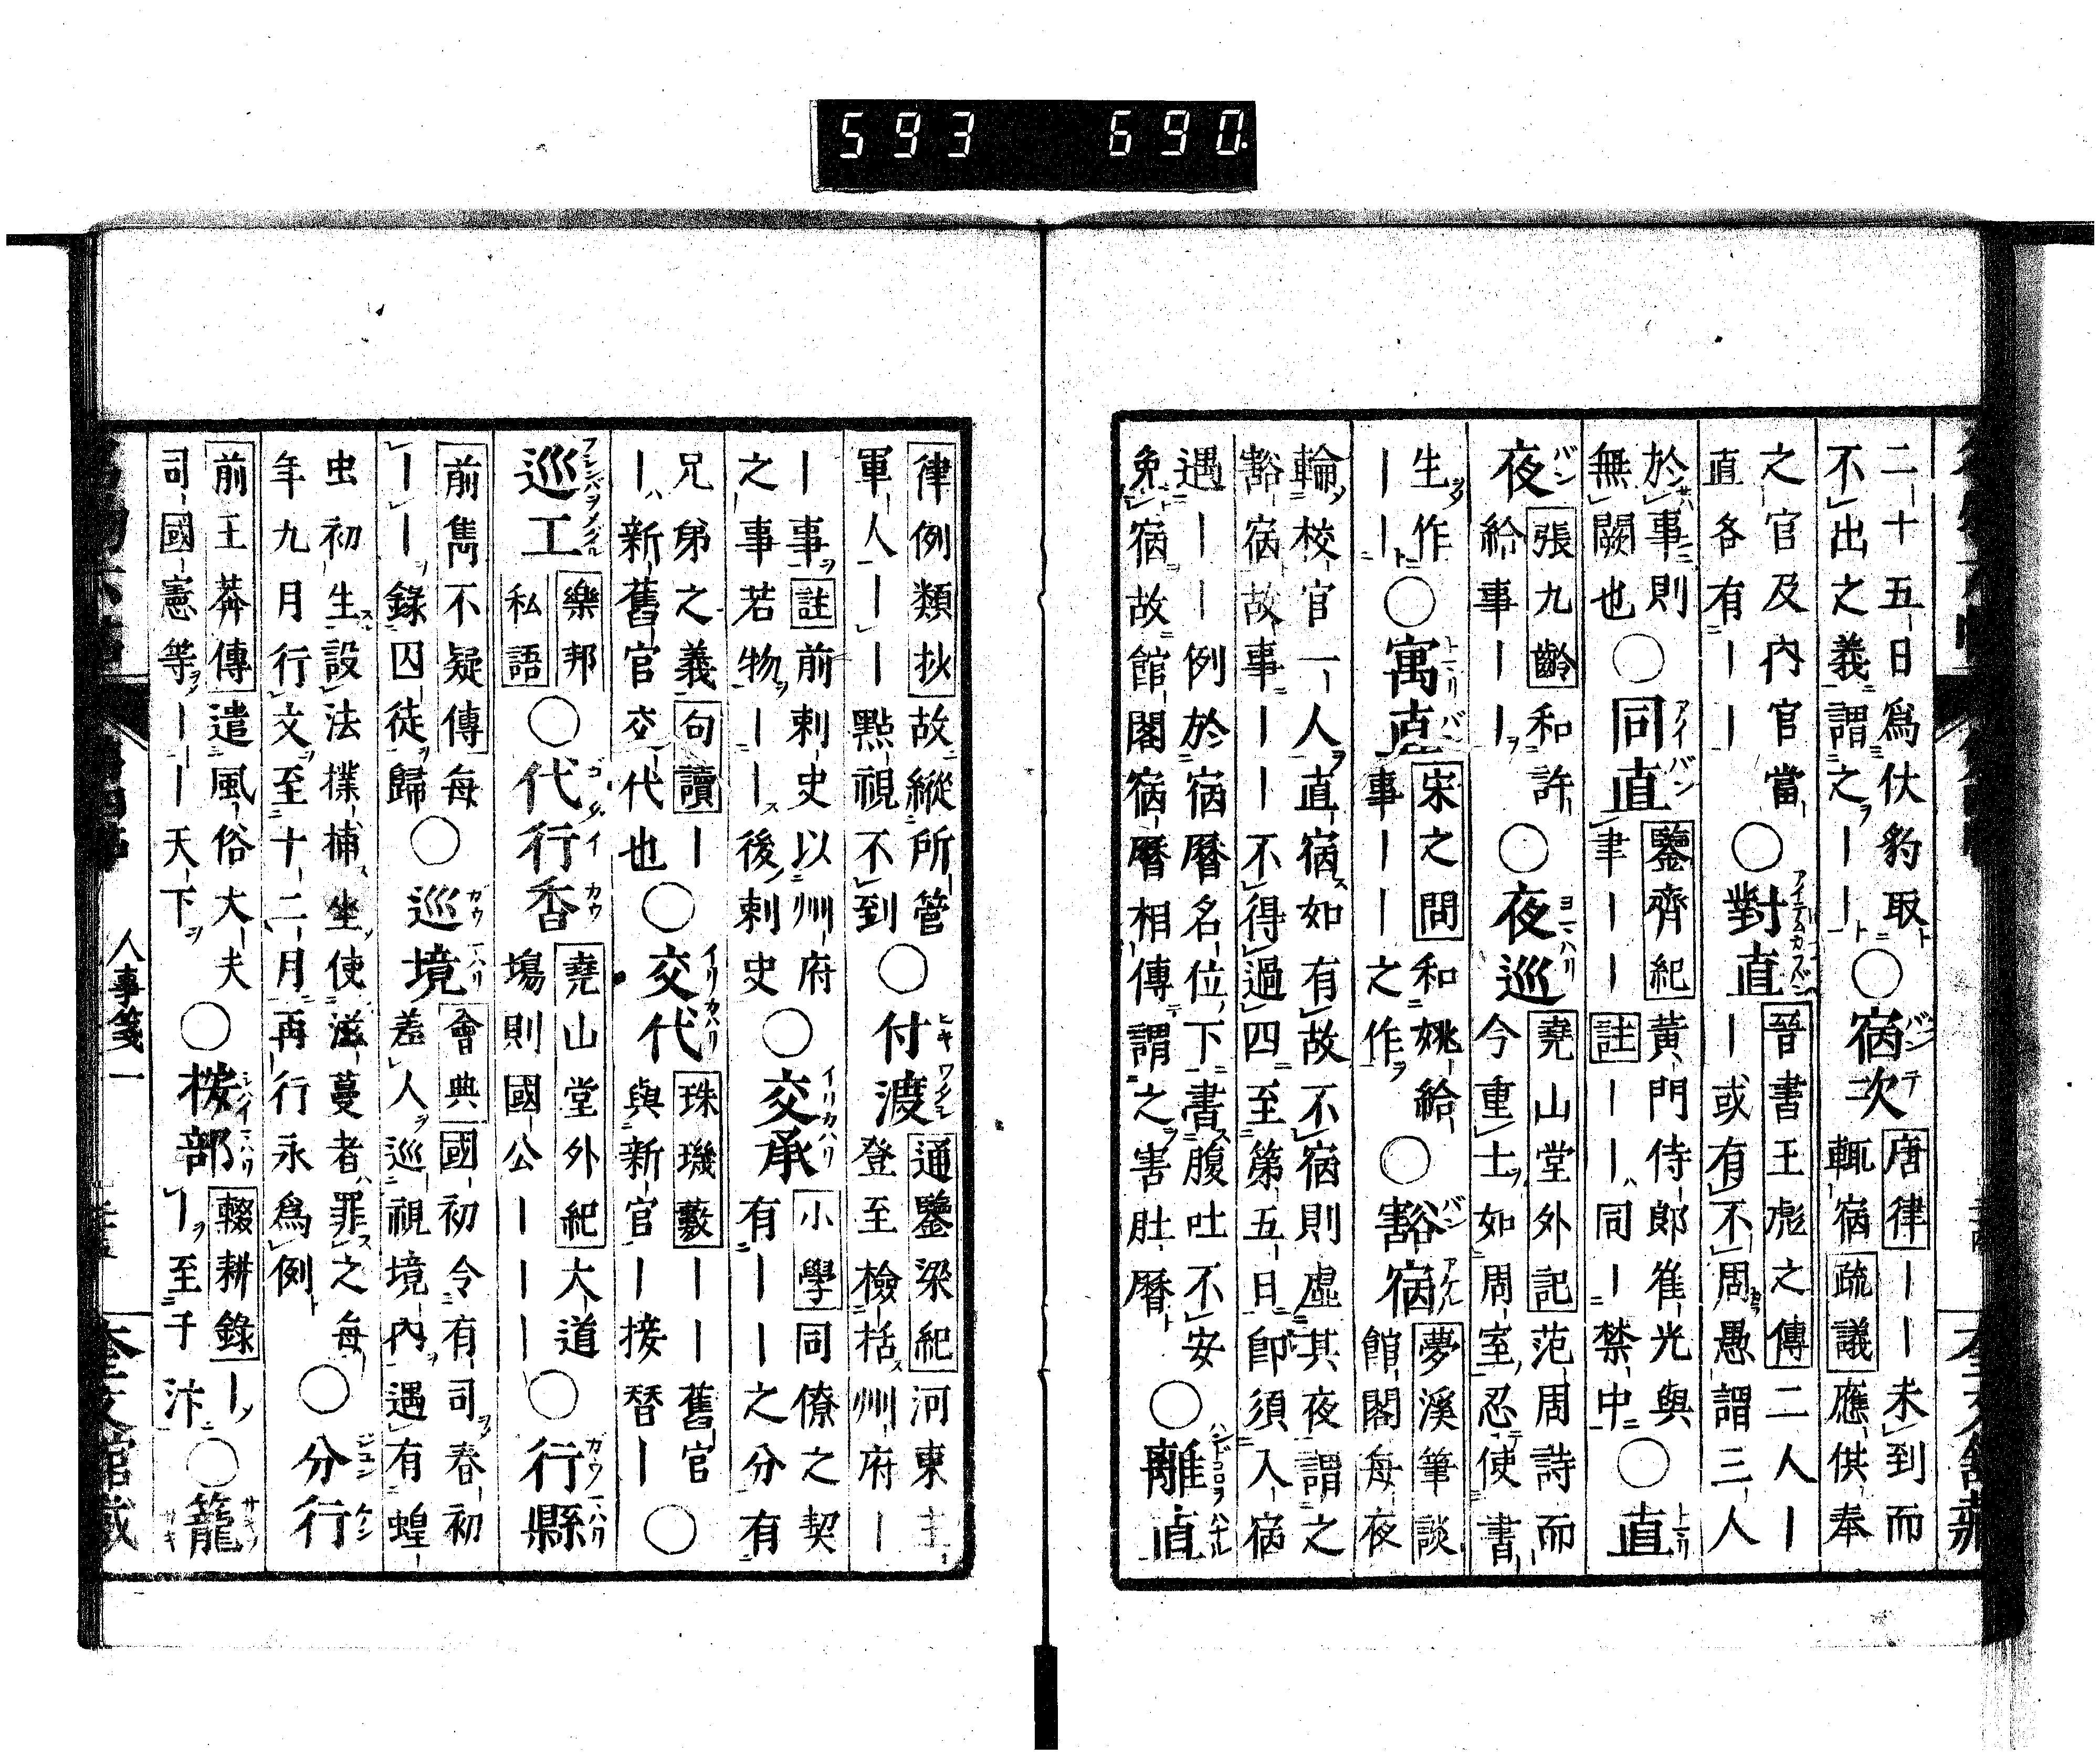 593 690
二十五日爲伏豹取
不出之義謂之――
○宿次
バンテ
唐律――未到而
輙宿疏議應供奉
之官及内官當
直各有――
○對直
晉書王彪之傳二人―
―或有不周愚謂三人
於事則
無闕也
○同直
アイバン
鑒齊紀黄門侍郎隹光與
聿――註――同―禁中
○直
トマリ
夜
バン
張九齡和許
給事――
○夜巡
ヨマハリ
堯山堂外記范周詩而
今重士如周室忍使書
生作
――
○寓直
トマリバン
宋之問和姚給
事――之作
○豁宿
バンアケル
夢溪筆談
館閣每夜
輪校官一人直宿如有故不宿則虛其夜謂之
豁宿故事――不得過四至第五日卽須入宿
遇――例於宿曆名位下書腹吐不安
免宿故館閣宿曆相傳謂之害肚曆
○離直
律例類抄故縱所管
軍人――點視不到
○付渡
ヒキワタシ
通鑒梁紀河東主
登至檢括州府―
―事註前刺史以州府
之事若物――後刺史
○交承
イリカハリ
小學同僚之契
有――之分有
兄弟之義句讀―
―新舊官交代也
○交代
イリカハリ
珠璣藪――舊官
與新官―接替―
○
巡工
フレシバヲメグル
樂邦
私語
○代行香
ゴダイカウ
堯山堂外紀大道
塲則國公―――
○行縣
カウマハリ
前雋不疑傳每
――錄囚徒歸
○巡境
カウマハリ
會典國初令有司春初
差人巡視境内遇有蝗
虫初生設法撲捕坐使滋蔓者罪之每
年九月行文至十二月再行永爲例
○分行
前王莽傳遣風俗大夫
司國憲等――天下
○按部
輟耕錄―
―至于汴
○籠
人事箋一